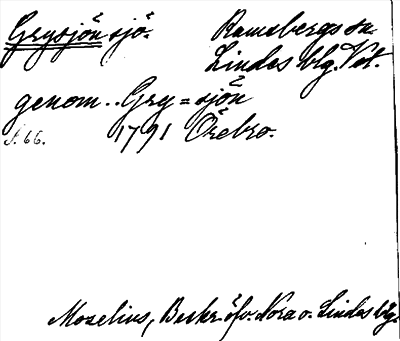 Grysjön sjö. Ramsbergs sn.
Lindes blg. Vst.
genom.. Gry=sjön
s. 66. 1791 Örebro.
Moselius, Beskr. öfv. Nora o. Lindes blg.